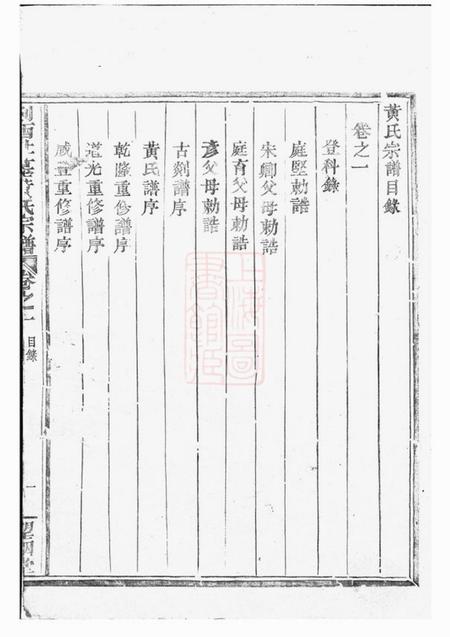 黃氏宗譜目錄
卷之一
登科錄
庭堅勅誥
宋卿父母勅誥
庭育父母勅誥
彥父母勅誥
古剡譜序
黃氏譜序
乾隆重修譜序
道光重修譜序
咸豐重修譜序
黃氏宗譜
卷之一
目錄
一
上海圖書館藏